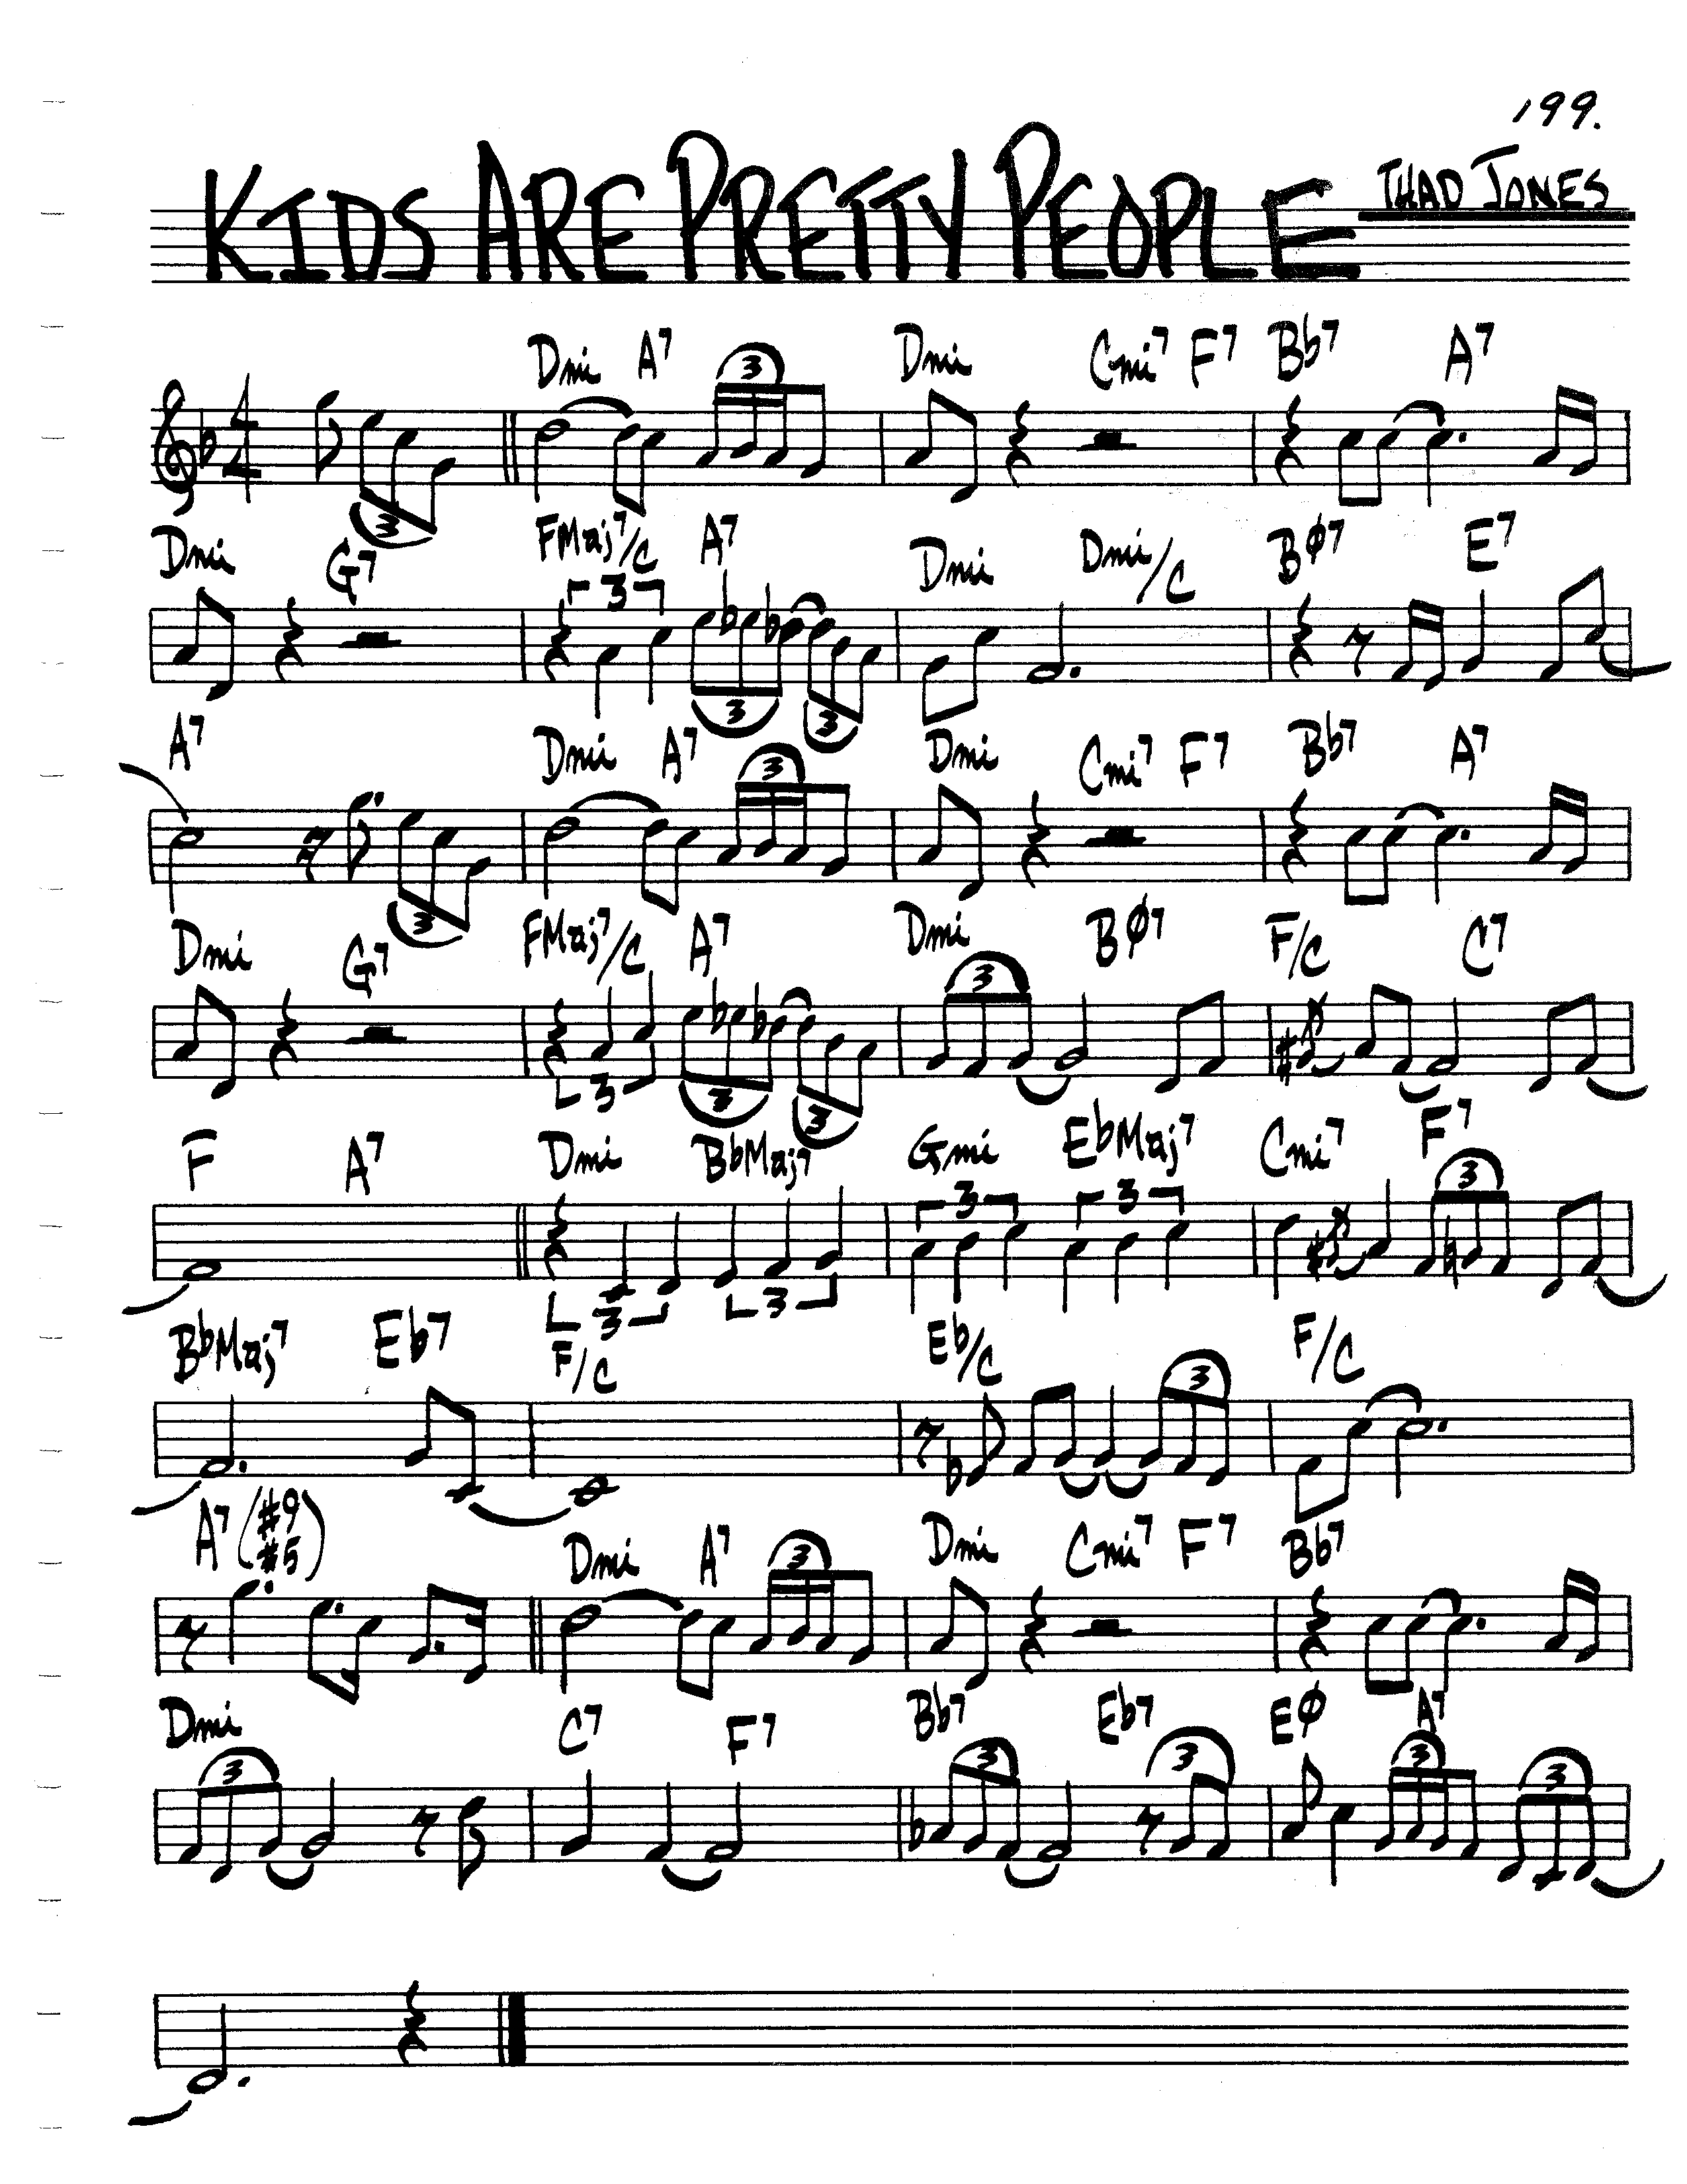 199.
KIDS ARE PRETTY PEOPLE THAD JONES
Dmi A7 3 Dmi Cmi7 F7 Bb7 A7
4
4
3
Dmi G7 FMaj7/C A7 Dmi Dmi/C BØ7 E7
3
3 3
A7 Dmi A7 3 Dmi Cmi7 F7 Bb7 A7
3
Dmi G7 FMaj7/C A7 Dmi BØ7 F/C C7
3
3 3 3
F A7 Dmi BbMaj7 Gmi EbMaj7 Cmi7 F7
3 3 3
3 3
BbMaj7 Eb7 F/C Eb/C F/C
3
A7(#9 #5) Dmi A7 3 Dmi Cmi7 F7 Bb7
Dmi C7 F7 Bb7 Eb7 EØ A7
3 3 3 3 3